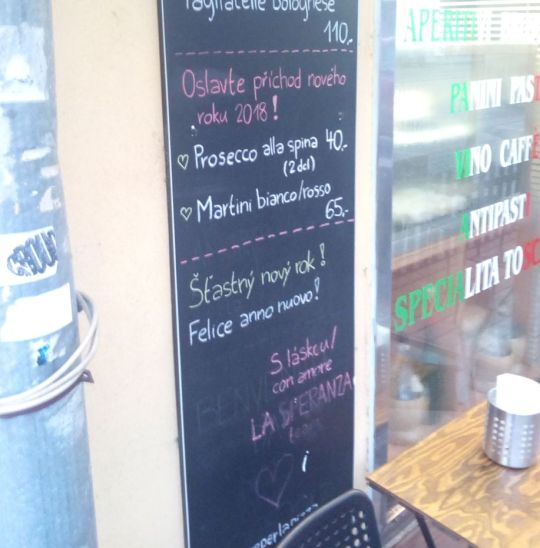 Tagliatelle bolognese
110,-
Oslavte příchod nového
roku 2018!
Prosecco alla spina 40,-
(2dcl)
Martini bianco/rosso
65,-
Šťastný nový rok!
Felice anno nuovo!
S láskou/
con amore
LA SPERANZA
APERITIV
PANINI PAST
VINO CAFFÈ
ANTIPASTI
SPECIALITA TOSC